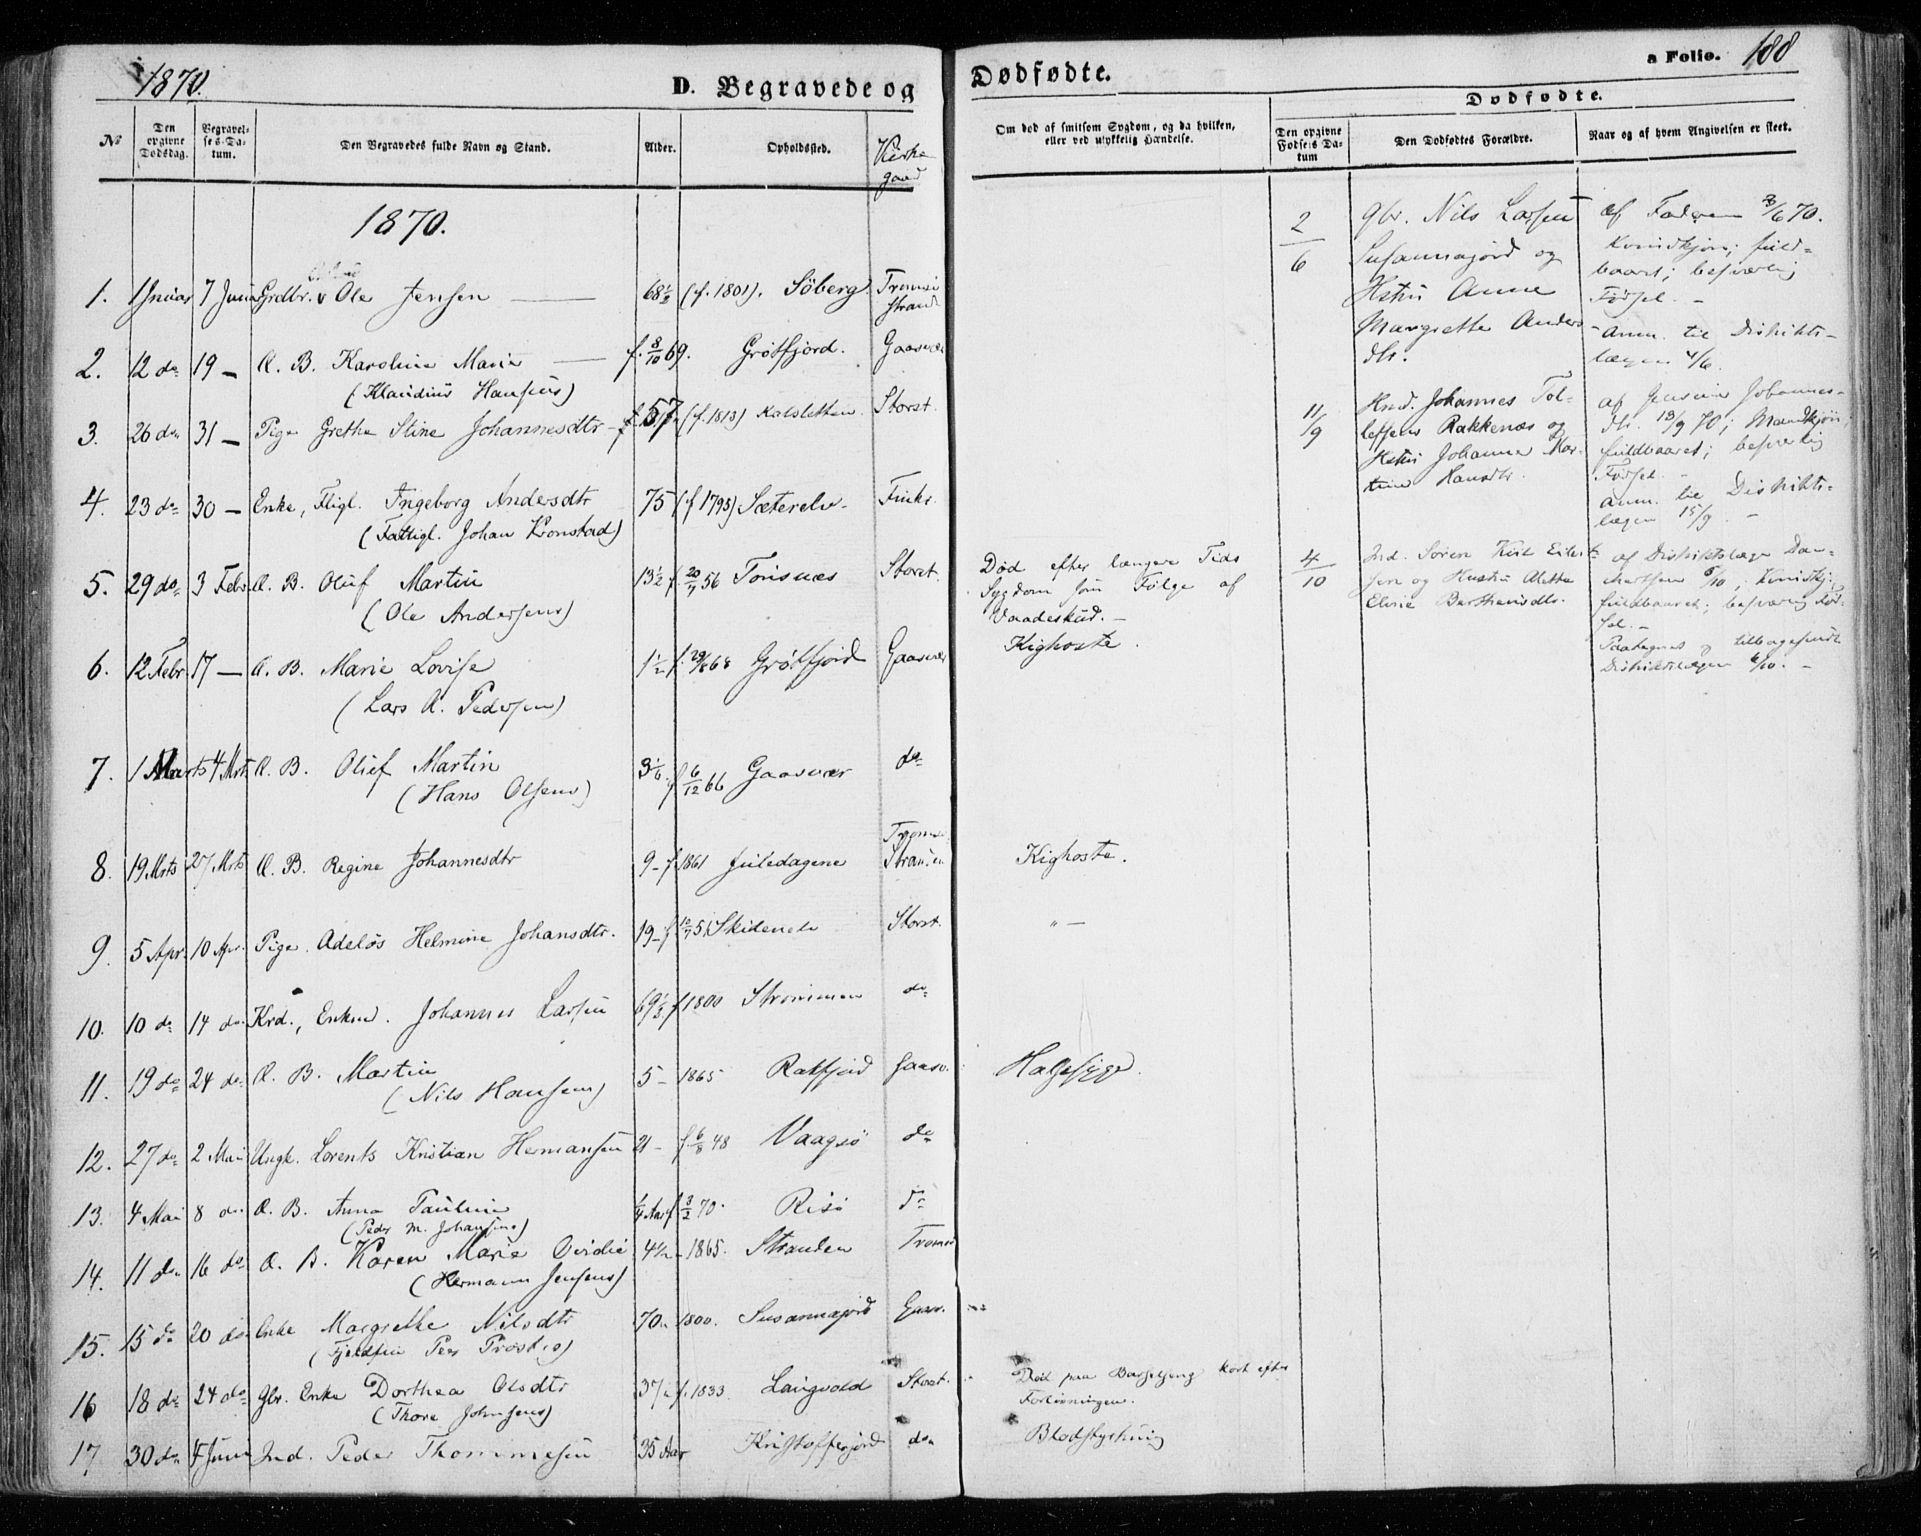 1870.
D. Begravede og
Dødfødte.
a Folio. 188
Dødfødte.
No
Den opgivne Dødsdag.
Begravelses-Datum.
Den Begravedes fulde Navn og Stand.
Alder.
Opholdssted.
Kirkegaard
Om død af smitsom Sygdom, og da hvilken, eller ved ulykkelig Hændelse.
Den opgivne Fødsels Datum
Den Dødfødtes Forældre.
Naar og af hvem Angivelsen er skeet.
1870.
1. 1 Jnuar 7 Juni Grdbr. Ole Jensen 68½ (f. 1801). Söberg. Tromsö strand
2. 12 do 19 — U. B. Karoline Marie f. 8/10 69. Grötfjord. Gaasvær
(Klaudius Hansens)
3. 26 do 31 — Pige Grethe Stine Johannesdtr 57 (f. 1813) Kalsletten Storst.
4. 23 do 30 — Enke, Fligl. Ingeborg Andersdtr 75 (f 1795) Sæterelv. Finkr.
(Fattigl. Johan Kronstad)
5. 29 do 3 Febr. U. B. Oluf Martin 13½ f 56 Tonsnes Storst.
(Ole Andersens)
Død efter længere Tids
Sygdom som Følge af
Vaadeskud. —
6. 12 Febr. 17 — U. B. Marie Lovise 1½ f. 68 Grötfjord Gaasvær Kighoste.
(Lars A. Pedersens)
7. 1 Marts 4 Mrts U. B. Oluf Martin 3 f 6/12 66 Gaasvær do
(Hans Olsens)
8. 19 Mrts 27 Mrts U. B. Regine Johannesdtr 9 - f 1861 Tromsö Stranden Kighoste.
9. 5 Apr. 10 Apr. Pige. Adelös Helmine Johansdtr. 19 - f Skitenelv Storst. " —
10. 10 do 14 do. Krd., Enkmd. Johannes Larsen 69 f 1800 Strømmen do
11. 19 do 24 do. U. B. Martin 5 - 1865 Ratfjord Gaasv. Halssyge.
(Nils Hansens)
12. 27 do 2 Mai Ungk. Lorents Kristian Hermansen 21 - f. 6/8 48 Vaagsö do
13. 4 Mai 8 do. U. B. Anna Pauline ¼ Aar f 3/2 70. Risö do
(Peder M. Johansens)
14. 11 do 16 do U. B. Karen Marie Ovidie 4½ - 1865. Stranden Tromsö
(Hermann Jensens)
15. 15 do 20 do Enke Margrethe Nilsdtr 70 1800. Susannajord Gaasv.
16 18 do 24 do Gbr. Enke Dorthea Olsdtr 37 f. 1833. Storst.
(Thore Johnsens)
Død paa Barselseng kort efter
Forløsningen.
17. 30 do 4 Juni Ind. Peder Thommesen 35 Aar Kristofferjord do. Blodstyrtning
2/6
Gbr. Nils Larsen
Susannajord og
Hstru Anne
Margrethe Anders-
dtr.
af Faderen 3/6 70.
Kvindkjøn; fuld-
baaret; besværlig
Fødsel. —
Anm. til Distrikts-
lægen 4/6.
11/9
Hmd. Johannes Tol-
lefsens Rakkenæs og
Hstru Johanna Mar-
thine Hansdtr.
af Johannes-
dtr. 13/9 70; Mandkjøn;
fuldbaaret; besværlig
Fødsel. —
anm. til Distrikts-
lægen 15/9. —
4/10
Ind. Søren Kiil Eilert-
sen og Hustru Alette
Elvine Berthensdtr.
af Distriktslæge Dan-
ielsen 5/10; Kvindkj.
fuldbaaret; besværlig Fød-
sel. —
Paategnet og tilbagesendt
Distriktslægen 6/10. —